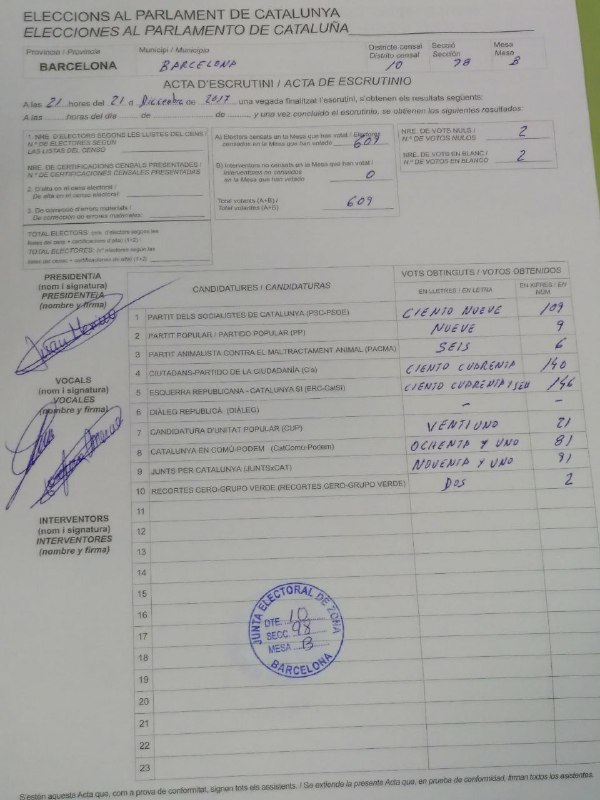 ELECCIONS AL PARLAMENT DE CATALUNYA
ELECCIONES AL PARLAMENTO DE CATALUÑA
Província / Provincia
BARCELONA
Municipi / Municipio
BARCELONA
Districte censal
Distrito censal
10
Secció
Sección
98
Mesa
Mesa
B
ACTA D'ESCRUTINI / ACTA DE ESCRUTINIO
A les 21 hores del 21 de Diciembre de 2017 una vegada finalitzat l'escrutini, s'obtenen els resultats següents:
A las horas del día de de y una vez concluido el escrutinio, se obtienen los siguientes resultados:
1. NRE. D'ELECTORS SEGONS LES LLISTES DEL CENS /
N.º DE ELECTORES SEGÚN
LAS LISTAS DEL CENSO
NRE. DE CERTIFICACIONS CENSALS PRESENTADES /
N.º DE CERTIFICACIONES CENSALES PRESENTADAS
2. D'alta en el cens electoral /
De alta en el censo electoral
3. De correcció d'errors materials /
De corrección de errores materiales
TOTAL ELECTORS
TOTAL ELECTORES
A) Electors censats en la Mesa que han votat / Electores
censados en la Mesa que han votado
609
B) Interventors no censats en la Mesa que han votat /
Interventores no censados
en la Mesa que han votado
0
Total votants (A+B) /
Total votantes (A+B)
609
NRE. DE VOTS NULS /
N.º DE VOTOS NULOS
2
NRE. DE VOTS EN BLANC /
N.º DE VOTOS EN BLANCO
2
PRESIDENT/A
(nom i signatura)
PRESIDENTE/A
(nombre y firma)
VOCALS
(nom i signatura)
VOCALES
(nombre y firma)
INTERVENTORS
(nom i signatura)
INTERVENTORES
(nombre y firma)
CANDIDATURES / CANDIDATURAS
VOTS OBTINGUTS / VOTOS OBTENIDOS
EN LLETRES / EN LETRA
EN XIFRES / EN NÚM.
1 PARTIT DELS SOCIALISTES DE CATALUNYA (PSC-PSOE) CIENTO NUEVE 109
2 PARTIT POPULAR / PARTIDO POPULAR (PP) NUEVE 9
3 PARTIT ANIMALISTA CONTRA EL MALTRACTAMENT ANIMAL (PACMA) SEIS 6
4 CIUTADANS-PARTIDO DE LA CIUDADANÍA (C's) CIENTO CUARENTA 140
5 ESQUERRA REPUBLICANA - CATALUNYA SÍ (ERC-CatSí) CIENTO CUARENTA Y SEIS 146
6 DIÀLEG REPUBLICÀ (DIÀLEG) - -
7 CANDIDATURA D'UNITAT POPULAR (CUP) VENTIUNO 21
8 CATALUNYA EN COMÚ-PODEM (CatComú-Podem) OCHENTA Y UNO 81
9 JUNTS PER CATALUNYA (JUNTSxCAT) NOVENTA Y UNO 91
10 RECORTES CERO-GRUPO VERDE (RECORTES CERO-GRUPO VERDE) DOS 2
11
12
13
14
15
16
17
18
19
20
21
22
23
JUNTA ELECTORAL DE ZONA
DTE. 10
SECC. 98
MESA B
BARCELONA
S'estén aquesta Acta que, com a prova de conformitat, signen tots els assistents. / Se extiende la presente Acta que, en prueba de conformidad, firman todos los asistentes.